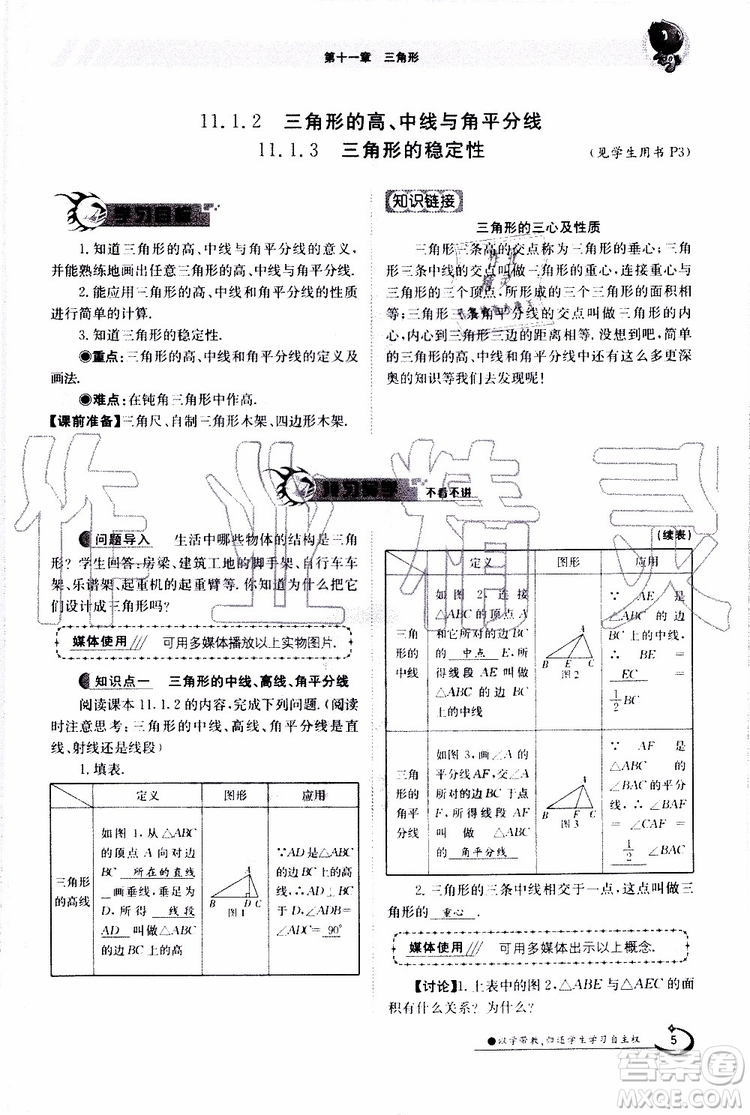 第十一章 三角形
11.1.2 三角形的高、中线与角平分线
11.1.3 三角形的稳定性
(见学生用书 P3)
学习目标
1. 知道三角形的高、中线与角平分线的意义,
并能熟练地画出任意三角形的高、中线与角平分线.
2. 能应用三角形的高、中线和角平分线的性质
进行简单的计算.
3. 知道三角形的稳定性.
●重点:三角形的高、中线与角平分线的定义及
画法.
●难点:在钝角三角形中作高.
【课前准备】三角尺、自制三角形木架、四边形木架.
知识链接
三角形的三心及性质
三角形三条高的交点称为三角形的垂心;三角
形三条中线的交点叫做三角形的重心,连接重心与
三角形的三个顶点,所形成的三个三角形的面积相
等;三角形三条角平分线的交点叫做三角形的内
心,内心到三角形三边的距离相等. 想不到吧,简单
的三角形的高、中线和角平分线中还有这么多更深
奥的知识等我们去发现呢!
不看不讲
问题导入 生活中哪些物体的结构是三角
形?学生回答:房梁、建筑工地的脚手架、自行车车
架、乐谱架、起重机的起重臂等. 你知道为什么把它
们设计成三角形吗?
媒体使用 可用多媒体播放以上实物图片.
知识点一 三角形的中线、高线、角平分线
阅读课本 11.1.2 的内容,完成下列问题.(阅读
时注意思考:三角形的中线、高线、角平分线是直
线、射线还是线段)
1. 填表.
定义 图形 应用
三角形
的高线
如图 1,从△ABC
的顶点 A 向对边
BC 所在的直线
画垂线,垂足为
D,所得 线段
AD 叫做△ABC
的边 BC 上的高
A
B D C
图 1
∵AD 是△ABC
的边 BC 上的高,
∴∠ADB =
∠ADC = 90°
(续表)
定义 图形 应用
三角
形的
中线
如图 2,连接
△ABC 的顶点 A
和它所对的边 BC
的 中点 E,所
得线段 AE 叫做
△ABC 的边 BC
上的中线
A
B E C
图 2
∵ AE 是
△ABC 的边
BC 上的中线,
∴ BE =
EC =
1/2 BC
三角
形的
角平
分线
如图 3,画∠A 的
平分线 AF,交∠A
所对的边 BC 于
点 F,所得线段
AF 叫做△ABC
的 角平分线
A
B F C
图 3
∵ AF 是
△ABC 的角
平分线,
∴ ∠BAF
= ∠CAF =
1/2 ∠BAC
2. 三角形的三条中线相交于一点,这点叫做三
角形的 重心 .
媒体使用 可用多媒体出示以上概念.
【讨论】1. 上表中的图 2,△ABE 与△AEC 的面
积有什么关系?为什么?
●以学带教,归还学生学习自主权
5
作业精灵
答案圈
MXQE.COM